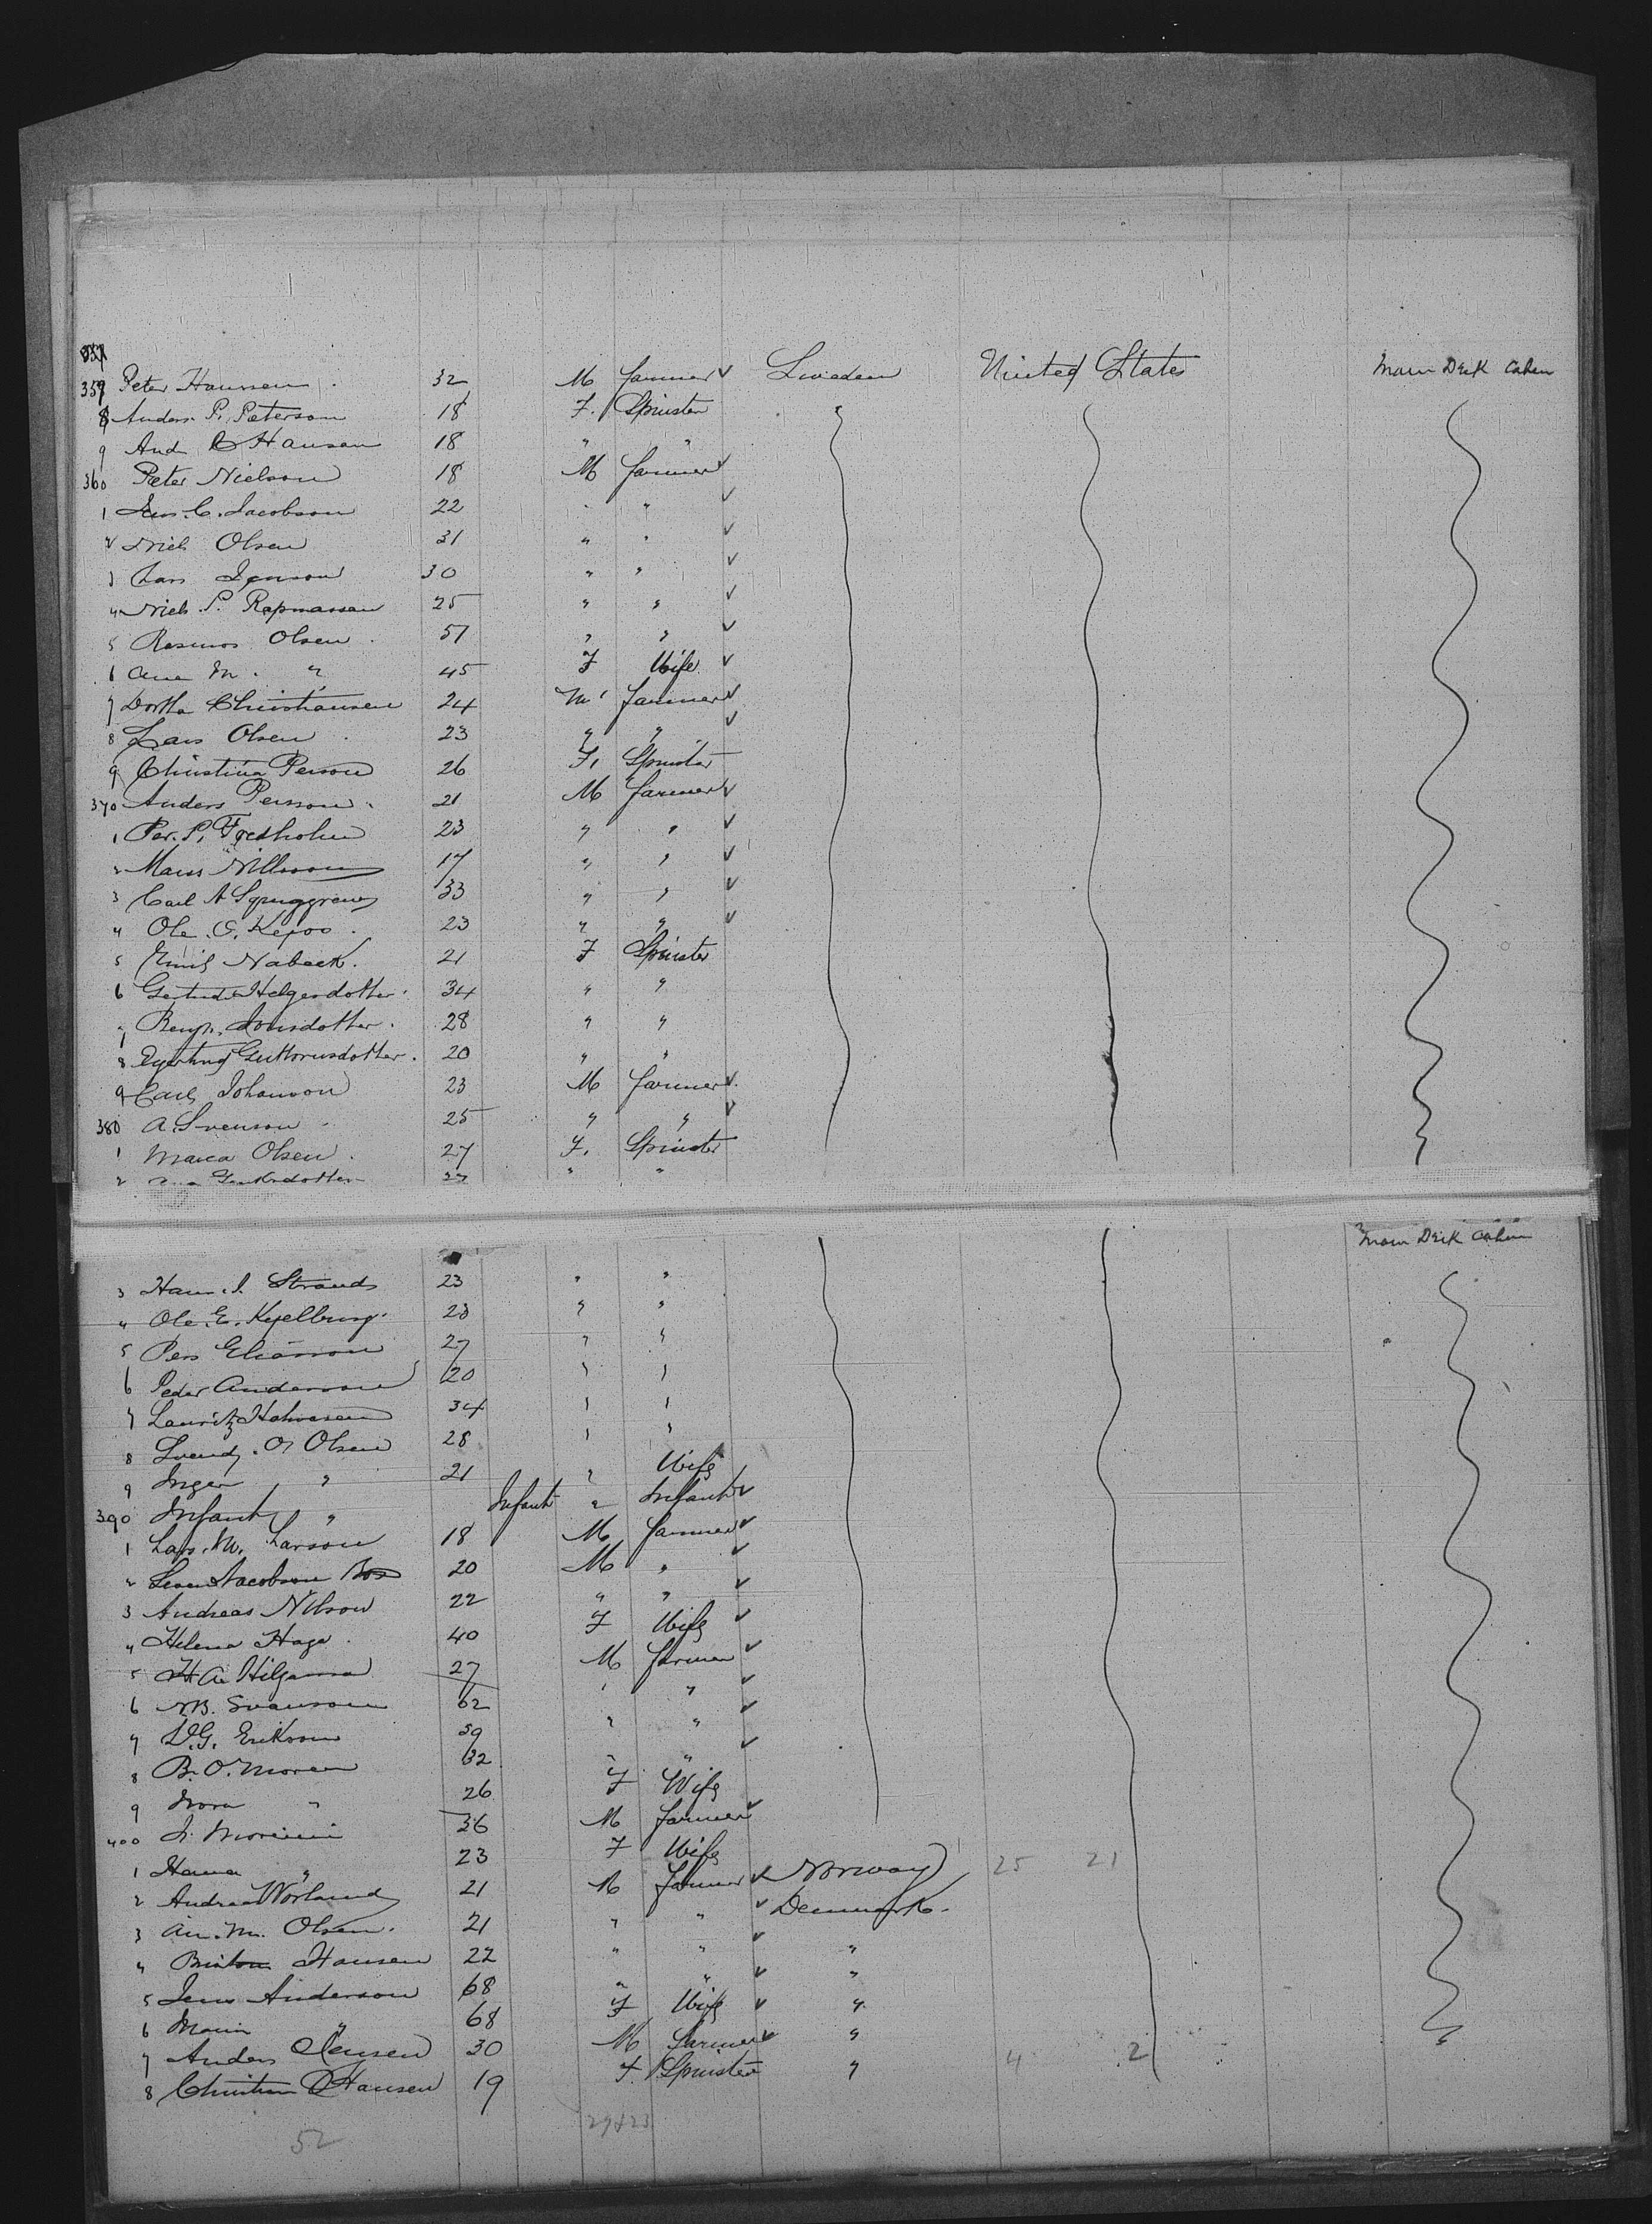 357 Peter Hansen 32 M farmer ✓ Sweden United States Main Deck Cabin
8 Anders P. Peterson 18 F. Spinster
9 And C Hansen 18 " "
360 Peter Nielson 18 M farmer ✓
1 Jens. C. Jacobson 22 " " ✓
2 Niels Olsen 31 " " ✓
3 Lars Jenson 30 " " ✓
4 Niels P. Rasmassen 25 " " ✓
5 Rasmos Olsen 51 " " ✓
6 Ane M. " 45 F Wife ✓
7 Dortha Christiansen 24 M farmer ✓
8 Lars Olsen 23 " " ✓
9 Christina Person 26 F. Spinster
370 Anders Person 21 M farmer ✓
1 Per. P. Fredholm 23 " " ✓
2 Mans Nillson 17 " " ✓
3 Carl A 33 " " ✓
4 Ole. O. 23 " " ✓
5 Emil Nabeck. 21 F Spinster
6 Gertrude Helgesdotter 34 " "
7 Jonsdotter 28 " "
8 Guttormsdotter 20 " "
9 Carl Johanson 23 M farmer ✓
380 A. Svenson 25 " " ✓
1 Maria Olsen 27 F. Spinster
2 27 " "
Main Deck Cabin
3 Hans. I. Strand 23 " "
4 Ole. E. Kjelburg. 23 " "
5 Pers Eliasson 27 " "
6 Peder Anderson 20 " "
7 Lauritz Halvorsen 34 " "
8 Svend. O Olsen 28 " "
9 Inger " 21 " Wife
390 Infant " Infant " Infant ✓
1 Lars. M. Larson 18 M farmer ✓
2 Jacobson 20 M " ✓
3 Andreas Nilson 22 " " ✓
4 Helena Haga 40 F Wife ✓
5 27 M farmer ✓
6 Svanson 62 " " ✓
7 Erikson 39 " " ✓
8 B. O. Moren 32 " " ✓
9 Nora " 26 F Wife
400 36 M farmer ✓
1 Hana " 23 F Wife
2 Andrea Worland 21 M farmer ✓ Norway 25 21
3 An. M. Olsen. 21 " " ✓ Denmark.
4 Hansen 22 " " ✓ "
5 Jens Anderson 68 " " ✓ "
6 Maria " 68 F Wife ✓ "
7 Anders Jensen 30 M farmer ✓ "
8 Hansen 19 F. Spinster " 4 2
52 29+23